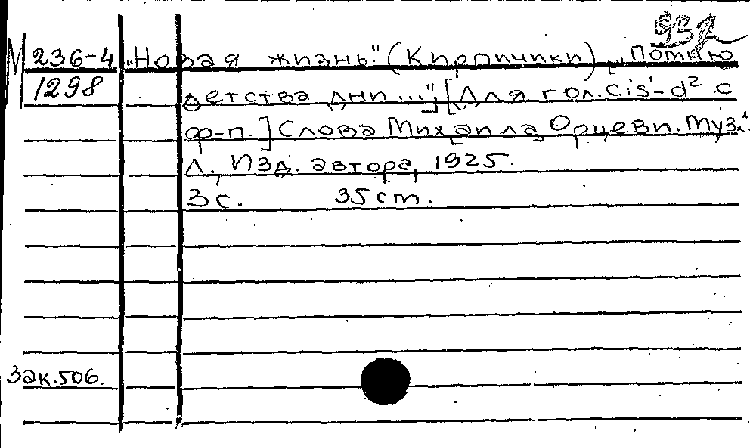 932
М 236-4 "Новая жизнь." (Кирпичики) "Помню
1298 детства дни..." [Для гол. cis¹-d² с
ф-п.] Слова Михаила Орцеви. Муз.
Л., Изд. автора, 1925.
3с. 35 ст.
Зак. 506.